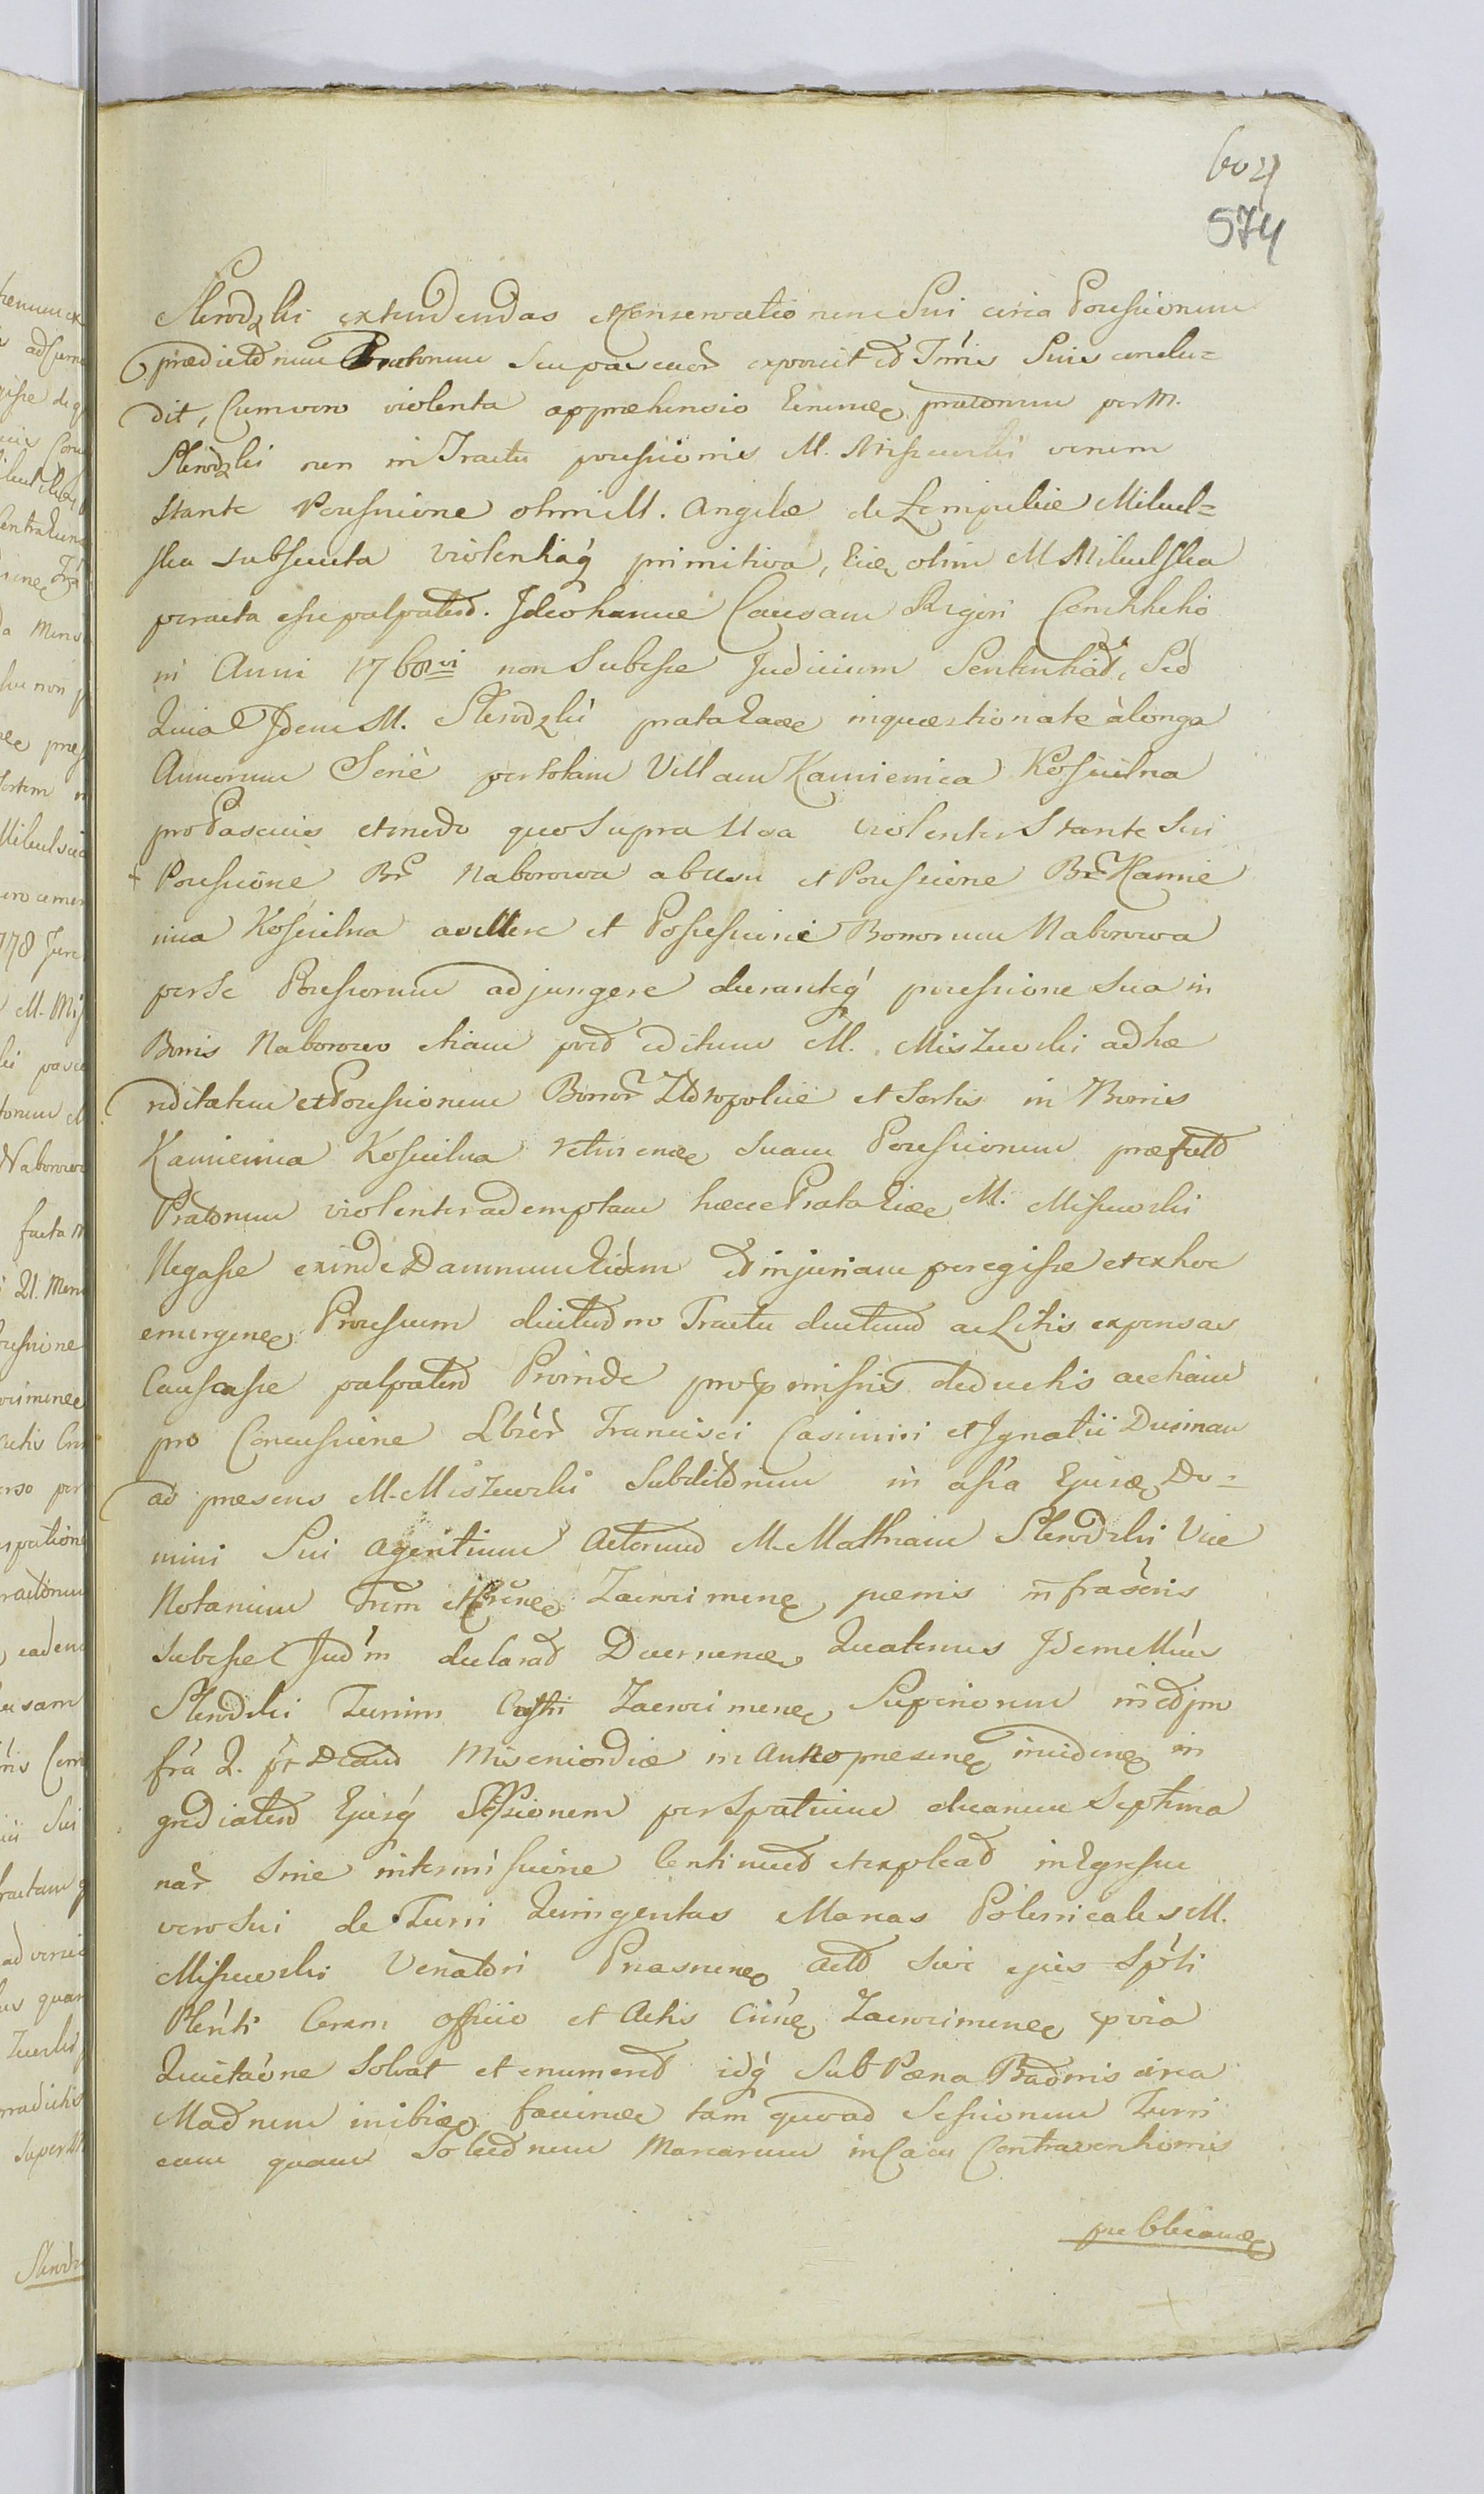 574
Skrodzki extendendas et conservationem Sui circa Possessionem
prædictorum Pratorum seu pascuor exposuit et Tmis Suis conclu=
dit, Cum vero violenta appræhensio Earunde pratorum per M.
Skrodzki non in Tractu possessionis M. Miszewski verum
stante Possessione olim M. Angelæ de Lempickie Mikul=
ska subsecuta violentiaq primitiva, Eidem olim M Mikulska
peracta esse palpatur. Ideo hance Causam Rigori Constitutio
ni Anni 1768vi non Subesse Judicium Sententiat, Sed
Quia Idem M. Skrodzki prata Eadem in quæstionate à longa
Annorum Seriè per totam Villam Kamienica Kościelna
pro Pascuis et modo quo Supra Usa violenter Stante Sui
Possessione Br Naborowa ab Usu et Possessione Br Kamie
nica Kościelna avellere et Possessioni Bonorum Naborowa
per Se Possessorum adjungere duranteq possessione Sua in
Bonis Naborowo etiam post aditum M. Miszewski ad hæ
reditatem et Possessionem Bonor et Sortis in Bonis
Kamienica Kościelna retinendo Suam Possessionem præfat
Pratorum violenter ademptam hæcce Prata Eidem M. Miszewski
Negasse exinde Damnum Eidem et injuriam peregisse et ex hoc
emergen Processum ductu in Tractu ductum ac Litis expensas
Causasse palpatur Proinde pro præmissis deductis ac etiam
pro Concussione Lbior Francisci Casimiri et Ignatii Dusiman
ad præsens M. Miszewski Subditorum in assa Ejusde Do=
mini Sui Agentium Actorum M. Mathiam Skrodzki Vice
Notarium Trem Zacrocimen pœnis infrascris
Subesse Judm declarat Decernendo Quatenus Idem Mcus
Skrodzki Turrim Castri Zacrocimen Superiorem
fra 2. Misericordiæ in Anno præsen inciden in
grediatur Ejusq Sessionem per Spatium duarum Septima
nar Sine intermissione Continuet et expleat in Egressu
vero Sui de Turri Quingentas Marcas Polonicales M.
Miszewski Venatori Prasnen Act Sive ejus Spcti
Plenti Coram Officio et Actis Zacrocimen prvia
Quietaone Solvat et enumeret idq Sub Pœna Bannis circa
ibide facien tam quoad Sessionem Turri
eam quam Solutnem Marcarum in Casu Contraventionis
publican